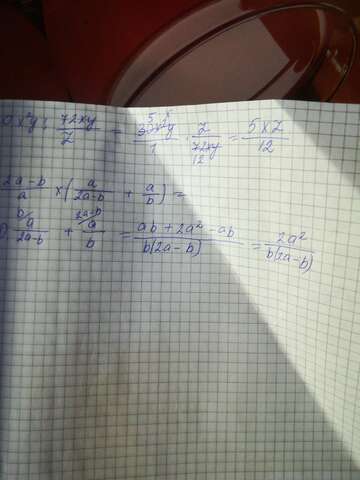 0x²y : 72xy/z = 30x²y/1 · z/72xy = 5xz/12
2a-b/a × (a/2a-b + a/b) =
1) a/2a-b + a/b = ab + 2a² - ab/b(2a-b) = 2a²/b(2a-b)